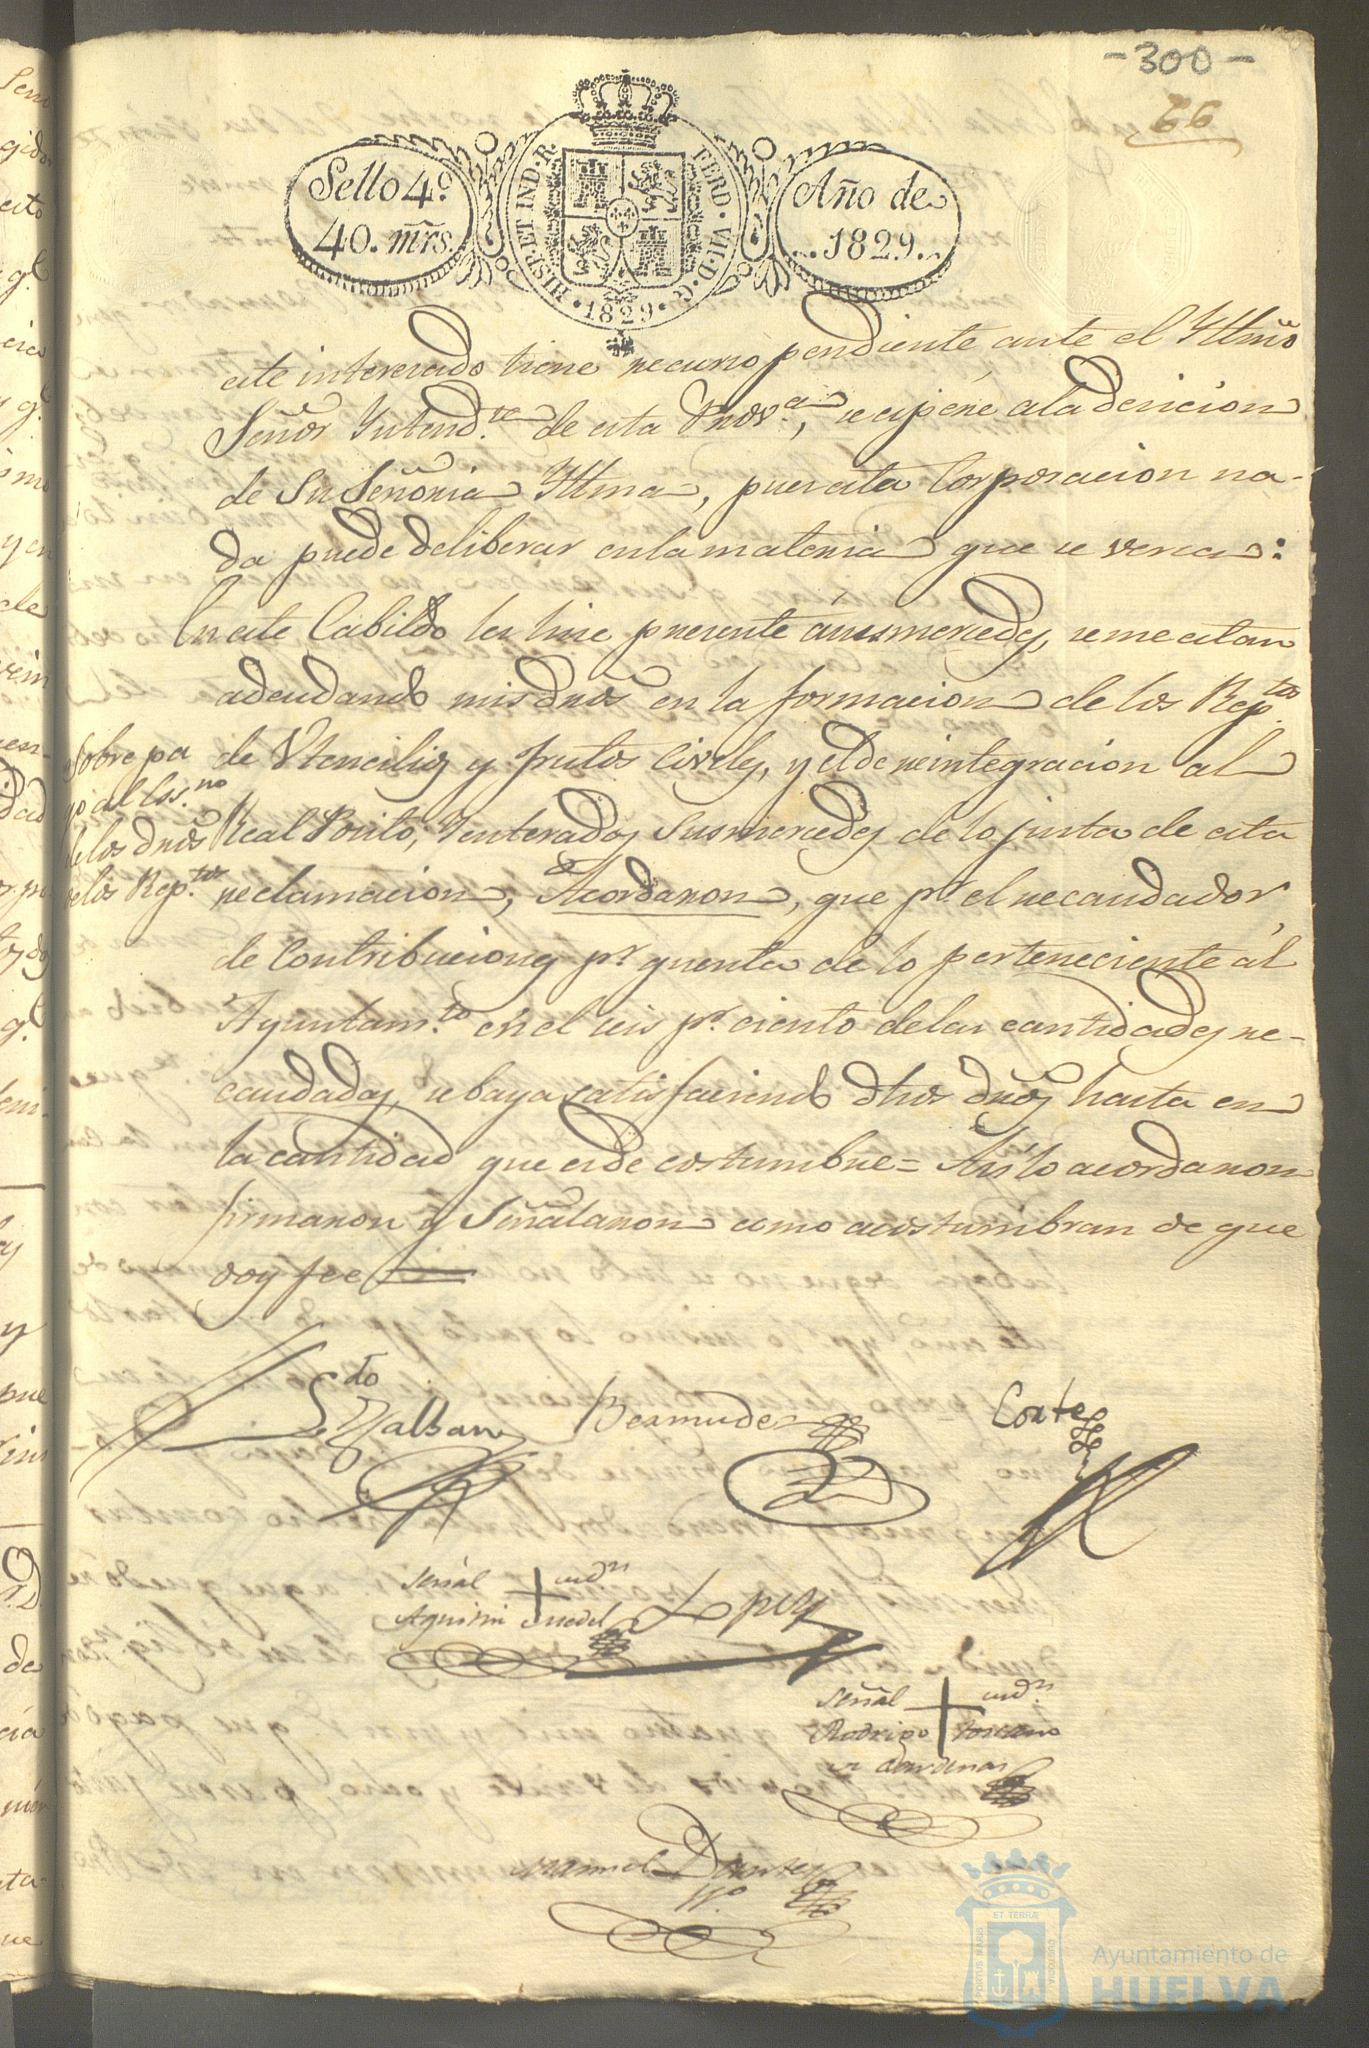 -300-
66
Sello 4º.
40. mrs.
HISP. ET IND. R.
FERD. VII. D. G.
1829
Año de
1829.
este interesado tiene recurso pendiente ante el Yltmo
Señor Yntendte de esta Prova, se espere ala decicion
de Su Señoria Yltma, pues esta Corporacion na-
da puede deliberar en la materia que se versa:
En este Cabildo les hise presente ásusmercedes, se me estan
adeudando mis dros en la formacion de los Reptos
de Utencilios y frutos Civiles, y el de reintegracion al
Real Posito; Yenterados Susmercedes de lo justa de esta
reclamacion, Acordaron, que pr el recaudador
de Contribuciones pr quenta de lo perteneciente al
Ayuntamto en el seis pr ciento delas cantidades re-
caudadas, se baya satisfaciendo dhos dros hasta en
la cantidad que es de costumbre = Asi lo acordaron
firmaron y Señalaron como acostumbran de que
doy fee
Sobre pa
go al Esno
de los dros
de los Reptos
Ldo
Bermudez
Cortes
Señal
Agustin
Lopez
Señal
Rodrigo Toscano
Cardenas
Manuel
PORTUS MARIS
ET TERRÆ
CUSTODIA
Ayuntamiento de
HUELVA